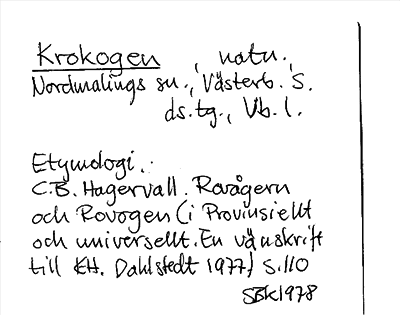 Krokogen , natn.,
Nordmalings sn., Västerb. S.
ds.tg., Vb. l.
Etymologi:
C.B. Hagervall. Rovågern
och Rovogen (i Provinsiellt
och universellt. En vänskrift
till KH. Dahlstedt 1977) S.110
SBK1978